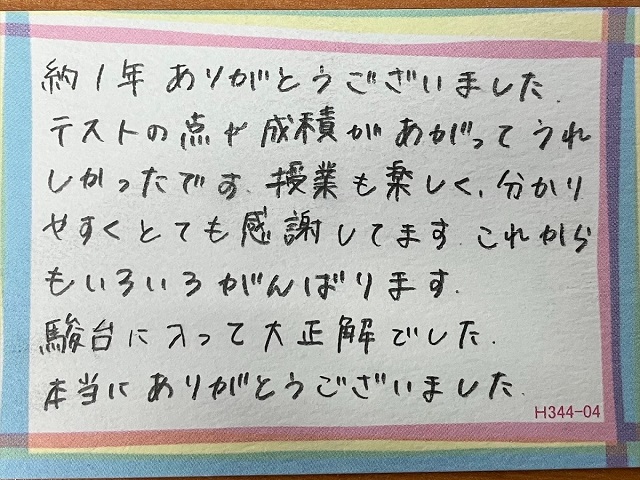 約1年ありがとうございました.
テストの点や成積があがってうれ
しかったです.授業も楽しく、分かり
やすくとても感謝してます.これから
もいろいろがんばります.
駿台に入って大正解でした.
本当にありがとうございました.
H344-04